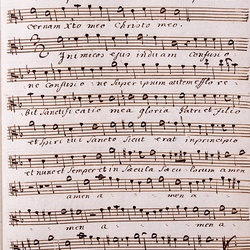 cernam Xto meo Christo meo.
Inimicos ejus induam confusio
ne confusio ne super ipsum autem efflore
bit sanctificatio mea gloria Patri et filio
et spiritui Sancto Sicut erat inprincipio
et nunc et semper et in sæcula sæculorum amen
amen a men a
men a men a